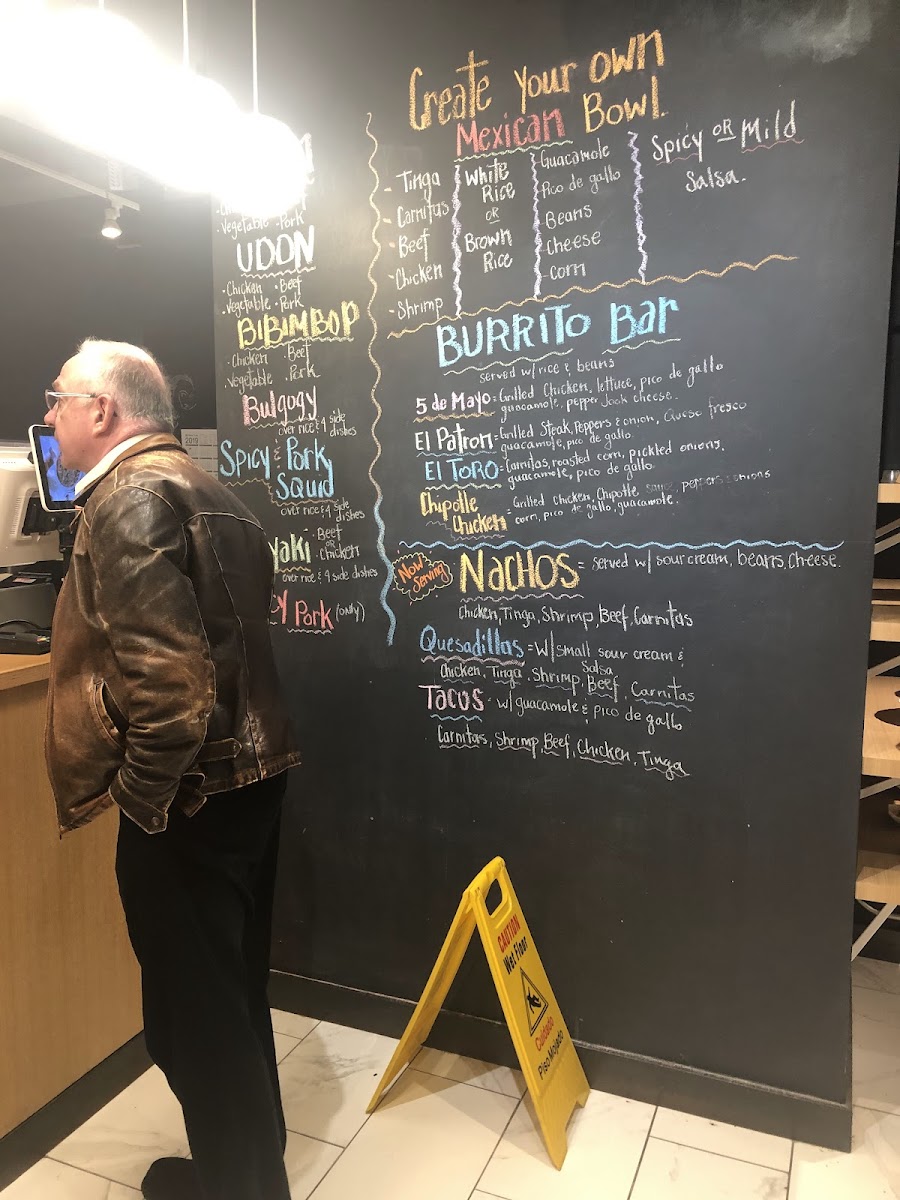 Create your own
Mexican Bowl.
- Tinga
- Carnitas
- Beef
- Chicken
- Shrimp
White
Rice
OR
Brown
Rice
Guacamole
Pico de gallo
Beans
- Cheese
- Corn
Spicy OR Mild
Salsa.
BURRITO Bar
served w/ rice & beans
5 de Mayo = Grilled Chicken, lettuce, pico de gallo
guacamole, pepper Jack cheese.
El Patron = Grilled Steak, Peppers & onion, Queso fresco
guacamole, pico de gallo.
El TORO = Carnitas, roasted corn, pickled onions.
guacamole, pico de gallo.
Chipotle
Chicken = Grilled Chicken, Chipotle sauce, peppers & onions
corn, pico de gallo, guacamole.
Now
Serving
NACHOS = served w/ sour cream, beans, cheese.
Chicken, Tinga, Shrimp, Beef, Carnitas
Quesadillas = w/ small sour cream &
Salsa
Chicken, Tinga, Shrimp, Beef, Carnitas
TACOS = w/ guacamole & pico de gallo
Carnitas, Shrimp, Beef, Chicken, Tinga
· Vegetable · Pork
UDON
· Chicken · Beef
· Vegetable · Pork
BiBiMBOP
· Chicken · Beef
· Vegetable · Pork
Bulgogy
over rice & 4 side
dishes
Spicy & Pork
SQUID
over rice & 4 side
dishes
yaki
· Beef
or
· Chicken
over rice & 4 side dishes
cy Pork (only)
2019
CAUTION
Wet Floor
Cuidado
Piso Mojado